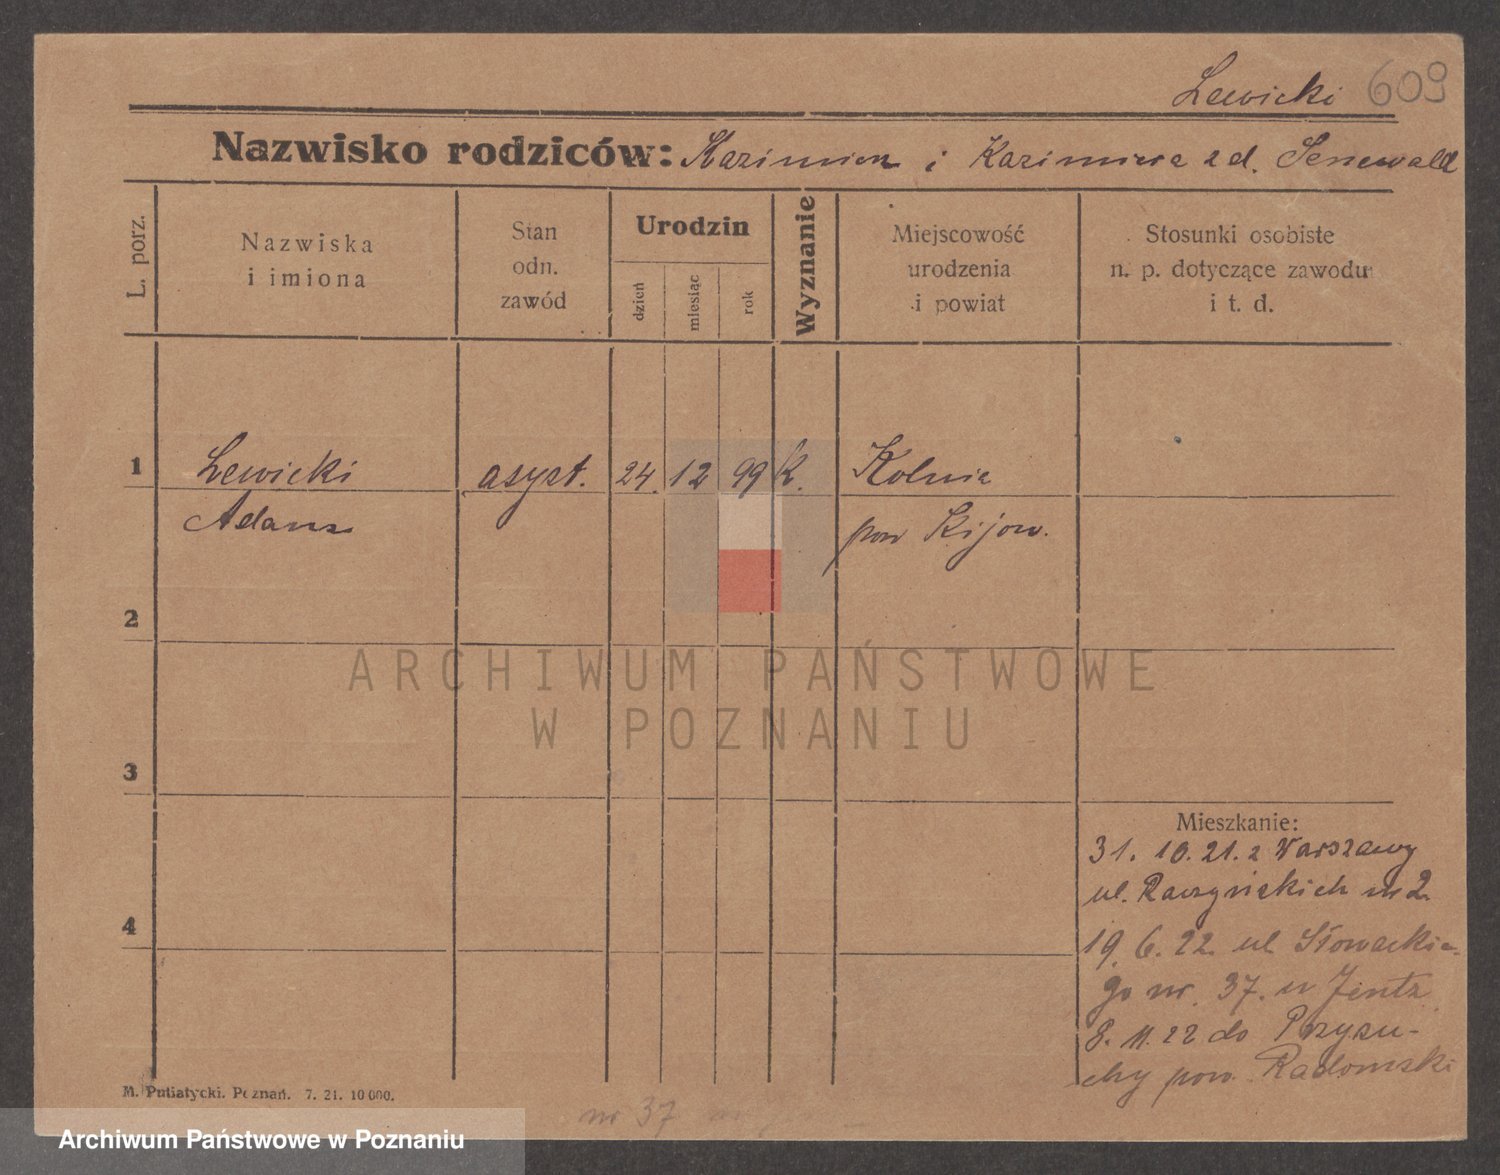 Lewicki 609
Nazwisko rodziców: Kazimierz i Kazimiera z d. Senewald
L. porz.
Nazwiska
i imiona
Stan
odn.
zawód
Urodzin
dzień
miesiąc
rok
Wyznanie
Miejscowość
urodzenia
i powiat
Stosunki osobiste
n. p. dotyczące zawodu
i t. d.
1 Lewicki asyst. 24. 12 99 k. Kolnie
Adam pow Kijow.
2
ARCHIWUM PAŃSTWOWE
W POZNANIU
3
Mieszkanie:
31. 10. 21. z Warszawy
ul. Raczyńskich nr 2
4
19. 6. 22. ul Słowackie-
go nr. 37. u Jentz
8. 11. 22 do Przysu-
chy pow. Radomski
M. Putiatycki. Poznań. 7. 21. 10 000.
nr 37
Archiwum Państwowe w Poznaniu